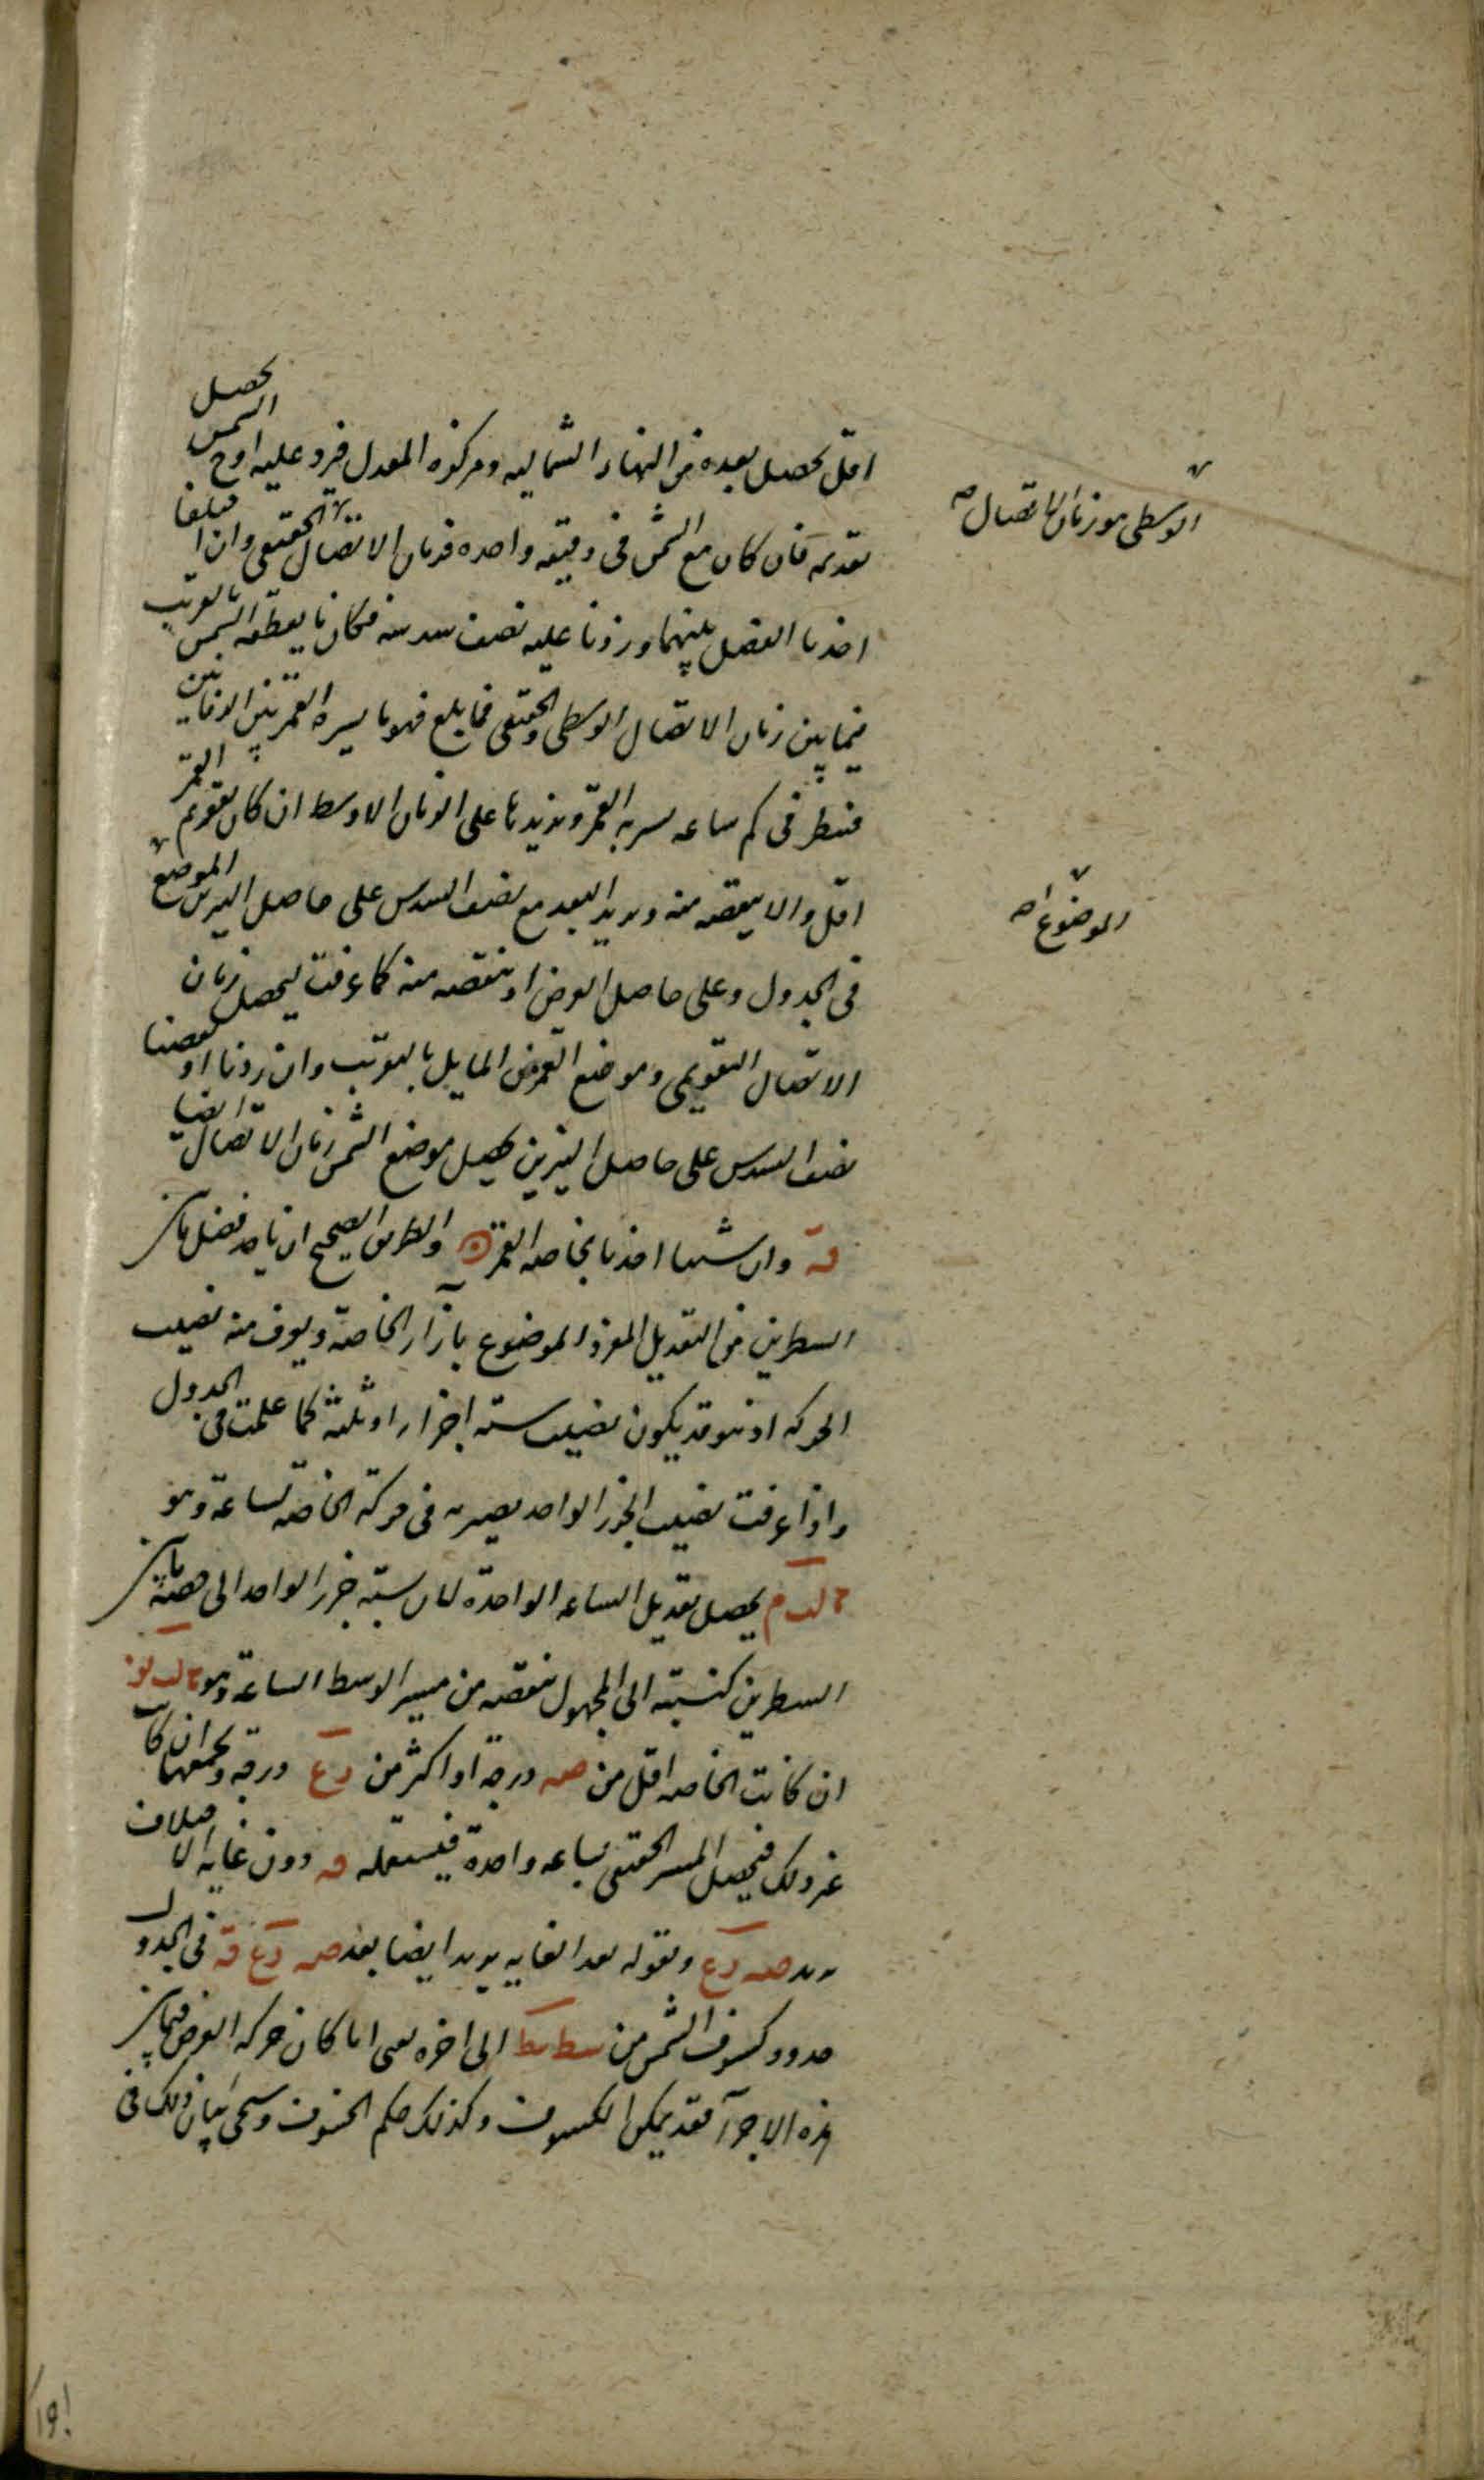 اقل يحصل بعده من النهار الشماليه ومركزه المعدل فيزد عليه اوج الشمس يحصل
تقويمه فان كان مع الشمس فى دقيقه واحده فزمان الاتصال الحقيقى وان اختلفا
اخذنا الفضل بينهما وزدنا عليه نصف سدسه فكان ما يقطعه الشمس بالتقريب
فيما بين زمان الاتصال الوسطى والحقيقى فما بلغ فهو ما يسيره القمر بين الزمانين
فننظر فى كم ساعه يسيره القمر ونزيدها على الزمان الاوسط ان كان تقويم القمر
اقل والا ينقصه منه ونزيد البعد مع نصف السدس على حاصل النيرين الموضع
فى الجدول وعلى حاصل العرض او ننقصه منه كما عرفت ليحصل زمان
الاتصال التقويمى وموضع القمر من المايل بالتقريب وان زدنا او نقصنا
نصف السدس على حاصل النيرين يحصل موضع الشمس زمان الاتصال ايضا
قه وان شئنا اخذنا بخاصه القمر والطريق الصحيح ان ناخذ فضل ما بين
السطرين من التعديل المفرد الموضوع بازآء الخاصة ويعرف منه نصيب
الحركه اذ هو قد يكون نصيب سته اجزاء او ثلثة كما علمت فى الجدول
واذا عرفت نصيب الجزء الواحد يضربه فى حركة الخاصه لساعة وهو
لب م يحصل تعديل الساعه الواحدة لان نسبة جزء الواحد الى حصة ما بين
السطرين كنسبته الى المجهول ننقصه من مسير الوسط الساعة وهو لب نو
ان كانت الخاصه اقل من صه درجة او اكثر من رع درجه ونجمعها ان كا
غير ذلك فيحصل المسير الحقيقى لساعه واحدة فيستعمله قه دون غايه الاختلاف
يريد صه رع وبقوله بعد الغايه يريد ايضا بعد صه رع قه فى الجدول
حدود كسوف الشمس من الى اخره يعنى اذا كان حركه العرض فيما بين
هذه الاجزآء فقد يمكن الكسوف وكذلك حكم الخسوف وسيجى بيان ذلك فى
الوسطى هو زمان الاتصال صح
الموضوع صح